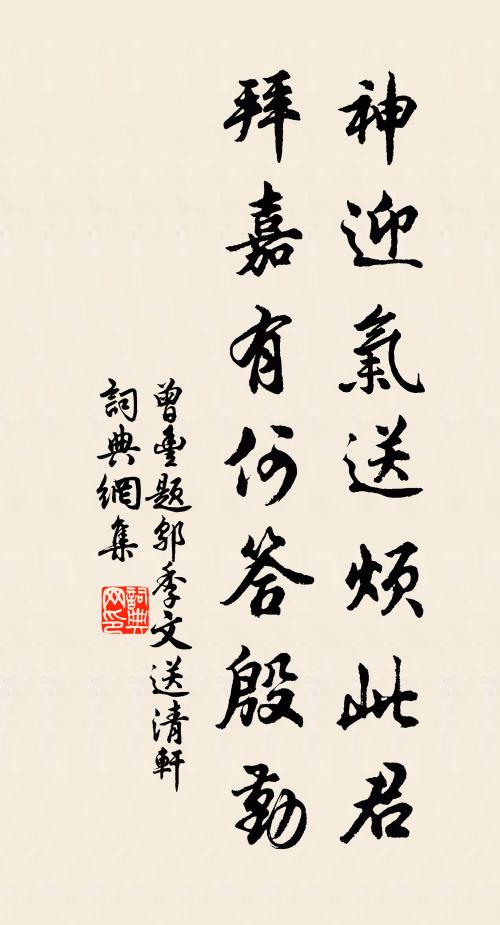 神迎氣送煩此君
拜嘉有何答殷勤
曾豐題鄔季文送清軒
詞典網集
詞典
网印